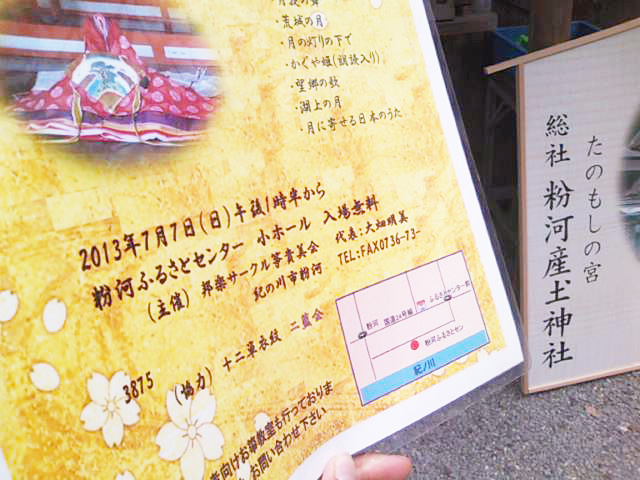 ・荒城の月
・月の灯りの下で
・かぐや姫(朗詠入り)
・望郷の歌
・湖上の月
・月に寄せる日本のうた
2013年7月7日(日)午後1時半から
粉河ふるさとセンター 小ホール 入場無料
(主催) 邦楽サークル箏貴美会 代表:大畑明美
紀の川市粉河 TEL:FAX0736-73-
3875 (協力) 十二単衣紋 二葉会
粉河 国道24号線 ふるさとセンター前
粉河ふるさとセン
紀ノ川
向けお箏教室も行っておりま
お問い合わせ下さい
たのもしの宮
総社 粉河産土神社